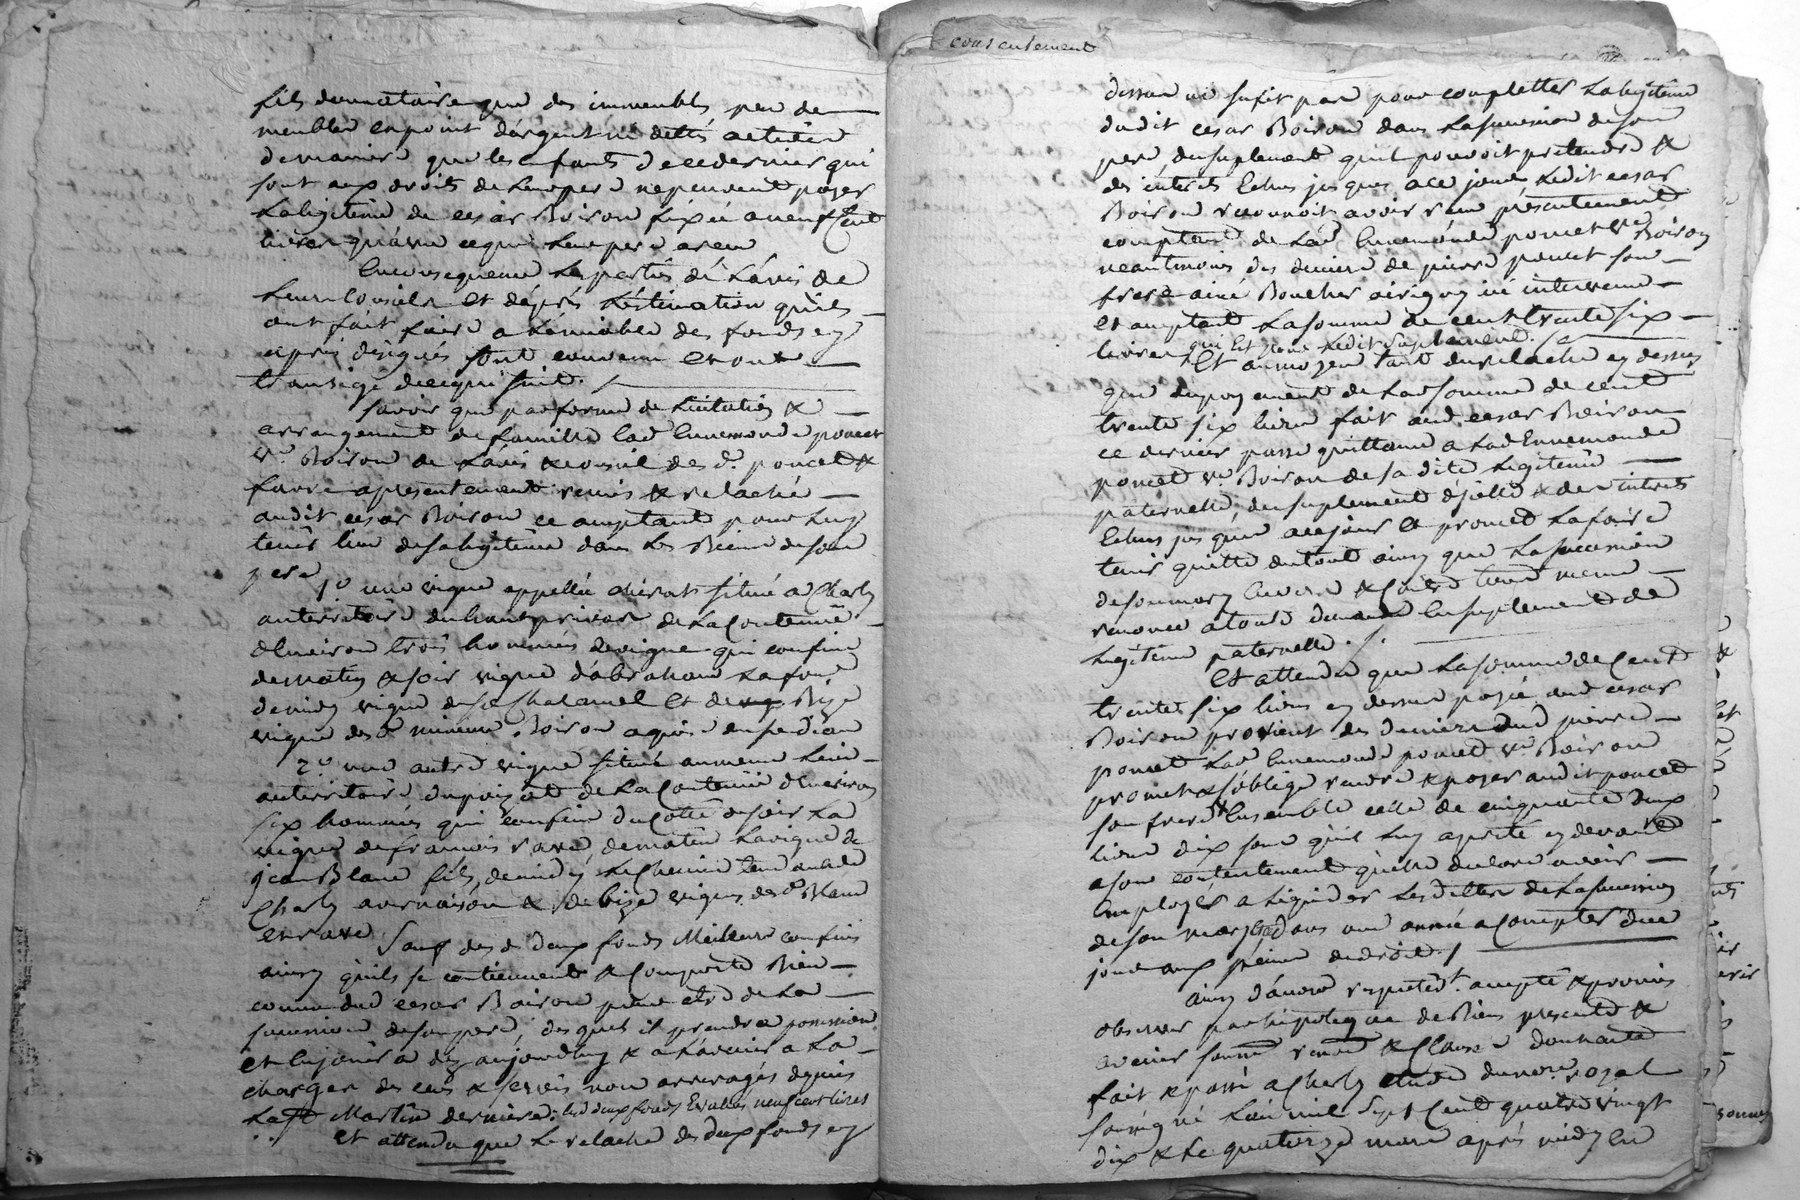 fils donnataire que des immeubles, peu de
meubles et point d'argent ni dettes actives
de maniere que les enfants de ce dernier qui
sont aux droits de leur pere ne peuvent payer
la légitime de cesar Boiron fixée a neuf Cent
livres qu'avec ce que leur pere a reçu
En consequence les parties de l'avis de
leurs Conseils et d'après l'éstimation qu'ils
ont fait faire a l'amiable des fonds cy
après désignés sont convenu et ont
transigé de ce qui suit.
savoir que par forme de licitation &
arrangement de famille lad Ennemonde poncet
ve Boiron de l'avis & conseil des d. poncet &
favre a présentement remis & relaché
audit cesar Boiron ce acceptant pour luy
tenir lieu de sa légitime dans les Biens de son
pere
1o une vigne appellée situé a Charly
au territoire du de la Contenüe
d'Environ trois hommées de vigne qui confine
de matin & soir vigne d'abraham
de midy vigne de sr Chalamel et de Bize
vigne des d mineurs Boiron
2o une autre vigne située au meme lieu
au territoire de la Contenüe d'Environ
six hommées qui confine du Côtté de soir la
vigne de francois ravé, de matin la vigne de
jean Blanc fils, de midy le Chemin tend
Charly a vernaison & de bize vignes des d Blanc
et ravé Sauf des d deux fonds Meilleurs confins
ainsy qu'ils se contiennent & Comporte Bien
connu dud cesar Boiron pour etre de la
succession de son pere, desquels il prendra possession
et en jouira dez aujourdhuy & a l'avenir a la
charger des cens & servis non arreragés depuis
la St Martin derniere; les deux fonds Evalués neuf cent livres
et attendu que le relaché des deux fonds cy
consentement
dessus ne sufit pas pour completter la légitime
dudit cesar Boiron dans la succession de son
pere du suplement qu'il pouvoit pretendre &
des interets Echus jusques a ce jour ledit cesar
Boiron reconnoit avoir reçu présentement
comptant de lad Ennemonde poncet ve Boiron
neantmoins des deniers de pierre poncet son
frere ainé Boucher a irigny ici intervenu
et acceptant la somme de cent trente six
livres qui Est pour ledit suplement.
Et au moyen tant du relaché cy dessus
que du payement de lad somme de cent
trente six livres fait aud cesar Boiron
ce dernier passe quittance a lad Ennemonde
poncet ve Boiron de sa dite légitime
paternelle, du suplement d'icelle & des interets
Echus jusques a ce jour et promet la faire
tenir quitte du tout ainsy que la succession
de son mary Envers & Contre tous meme
renonce a toute demande En suplement de
légitime paternelle.
Et attendu que la somme de Cent
trente six livres cy dessus payée aud cesar
Boiron provient des deniers dud pierre
poncet lad Ennemonde poncet ve Boiron
promet & s'oblige rendre & payer audit poncet
son frere Ensemble celle de cinquante deux
livres dix sous qu'il luy a preté cy devant
a son contentement qu'elle declare avoir
Employés a liquider les dettes de la succession
de son mary dans une année a Compter de ce
jour aux peines de droit.
ainsy d'accord respectivt. accepté & promis
observer par hipoteque de Biens presents &
avenir soumis renon & Clauses dont acte
fait & passé a Charly etude du nore royal
soussigné l'an mil Sept Cent quatre vingt
dix & le quatorze mars après midy lu